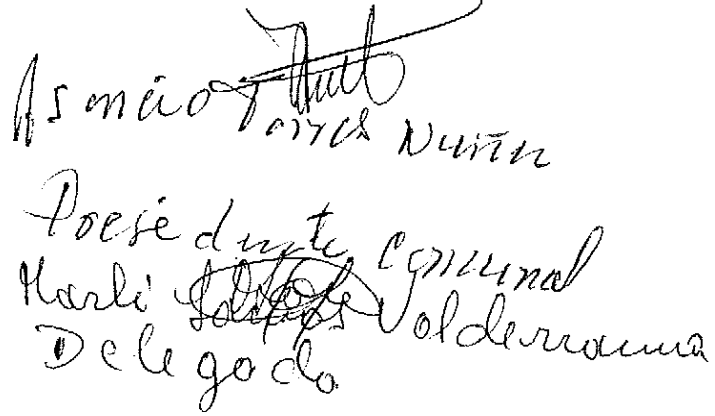 Asencio Torres Nuñez
Presidente Comunal
Marli Valderrama
Delegada